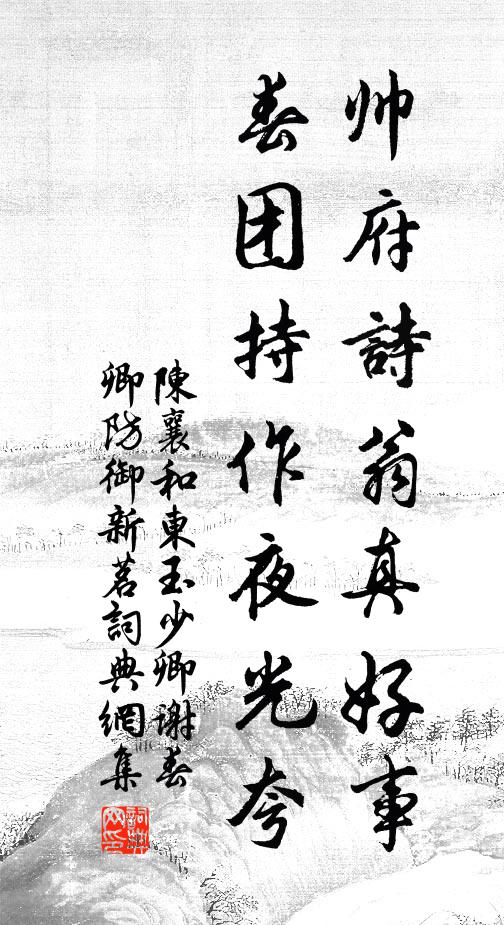 帅府詩翁真好事
春团持作夜光夸
陳襄和東玉少卿謝春
卿防御新茗詞典網集